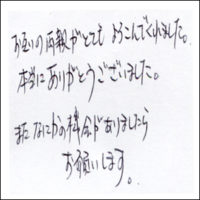 お互いの両親がとても よろこんでくれました。
本当にありがとうございました。
またなにかの機会がありましたら
お願いします。